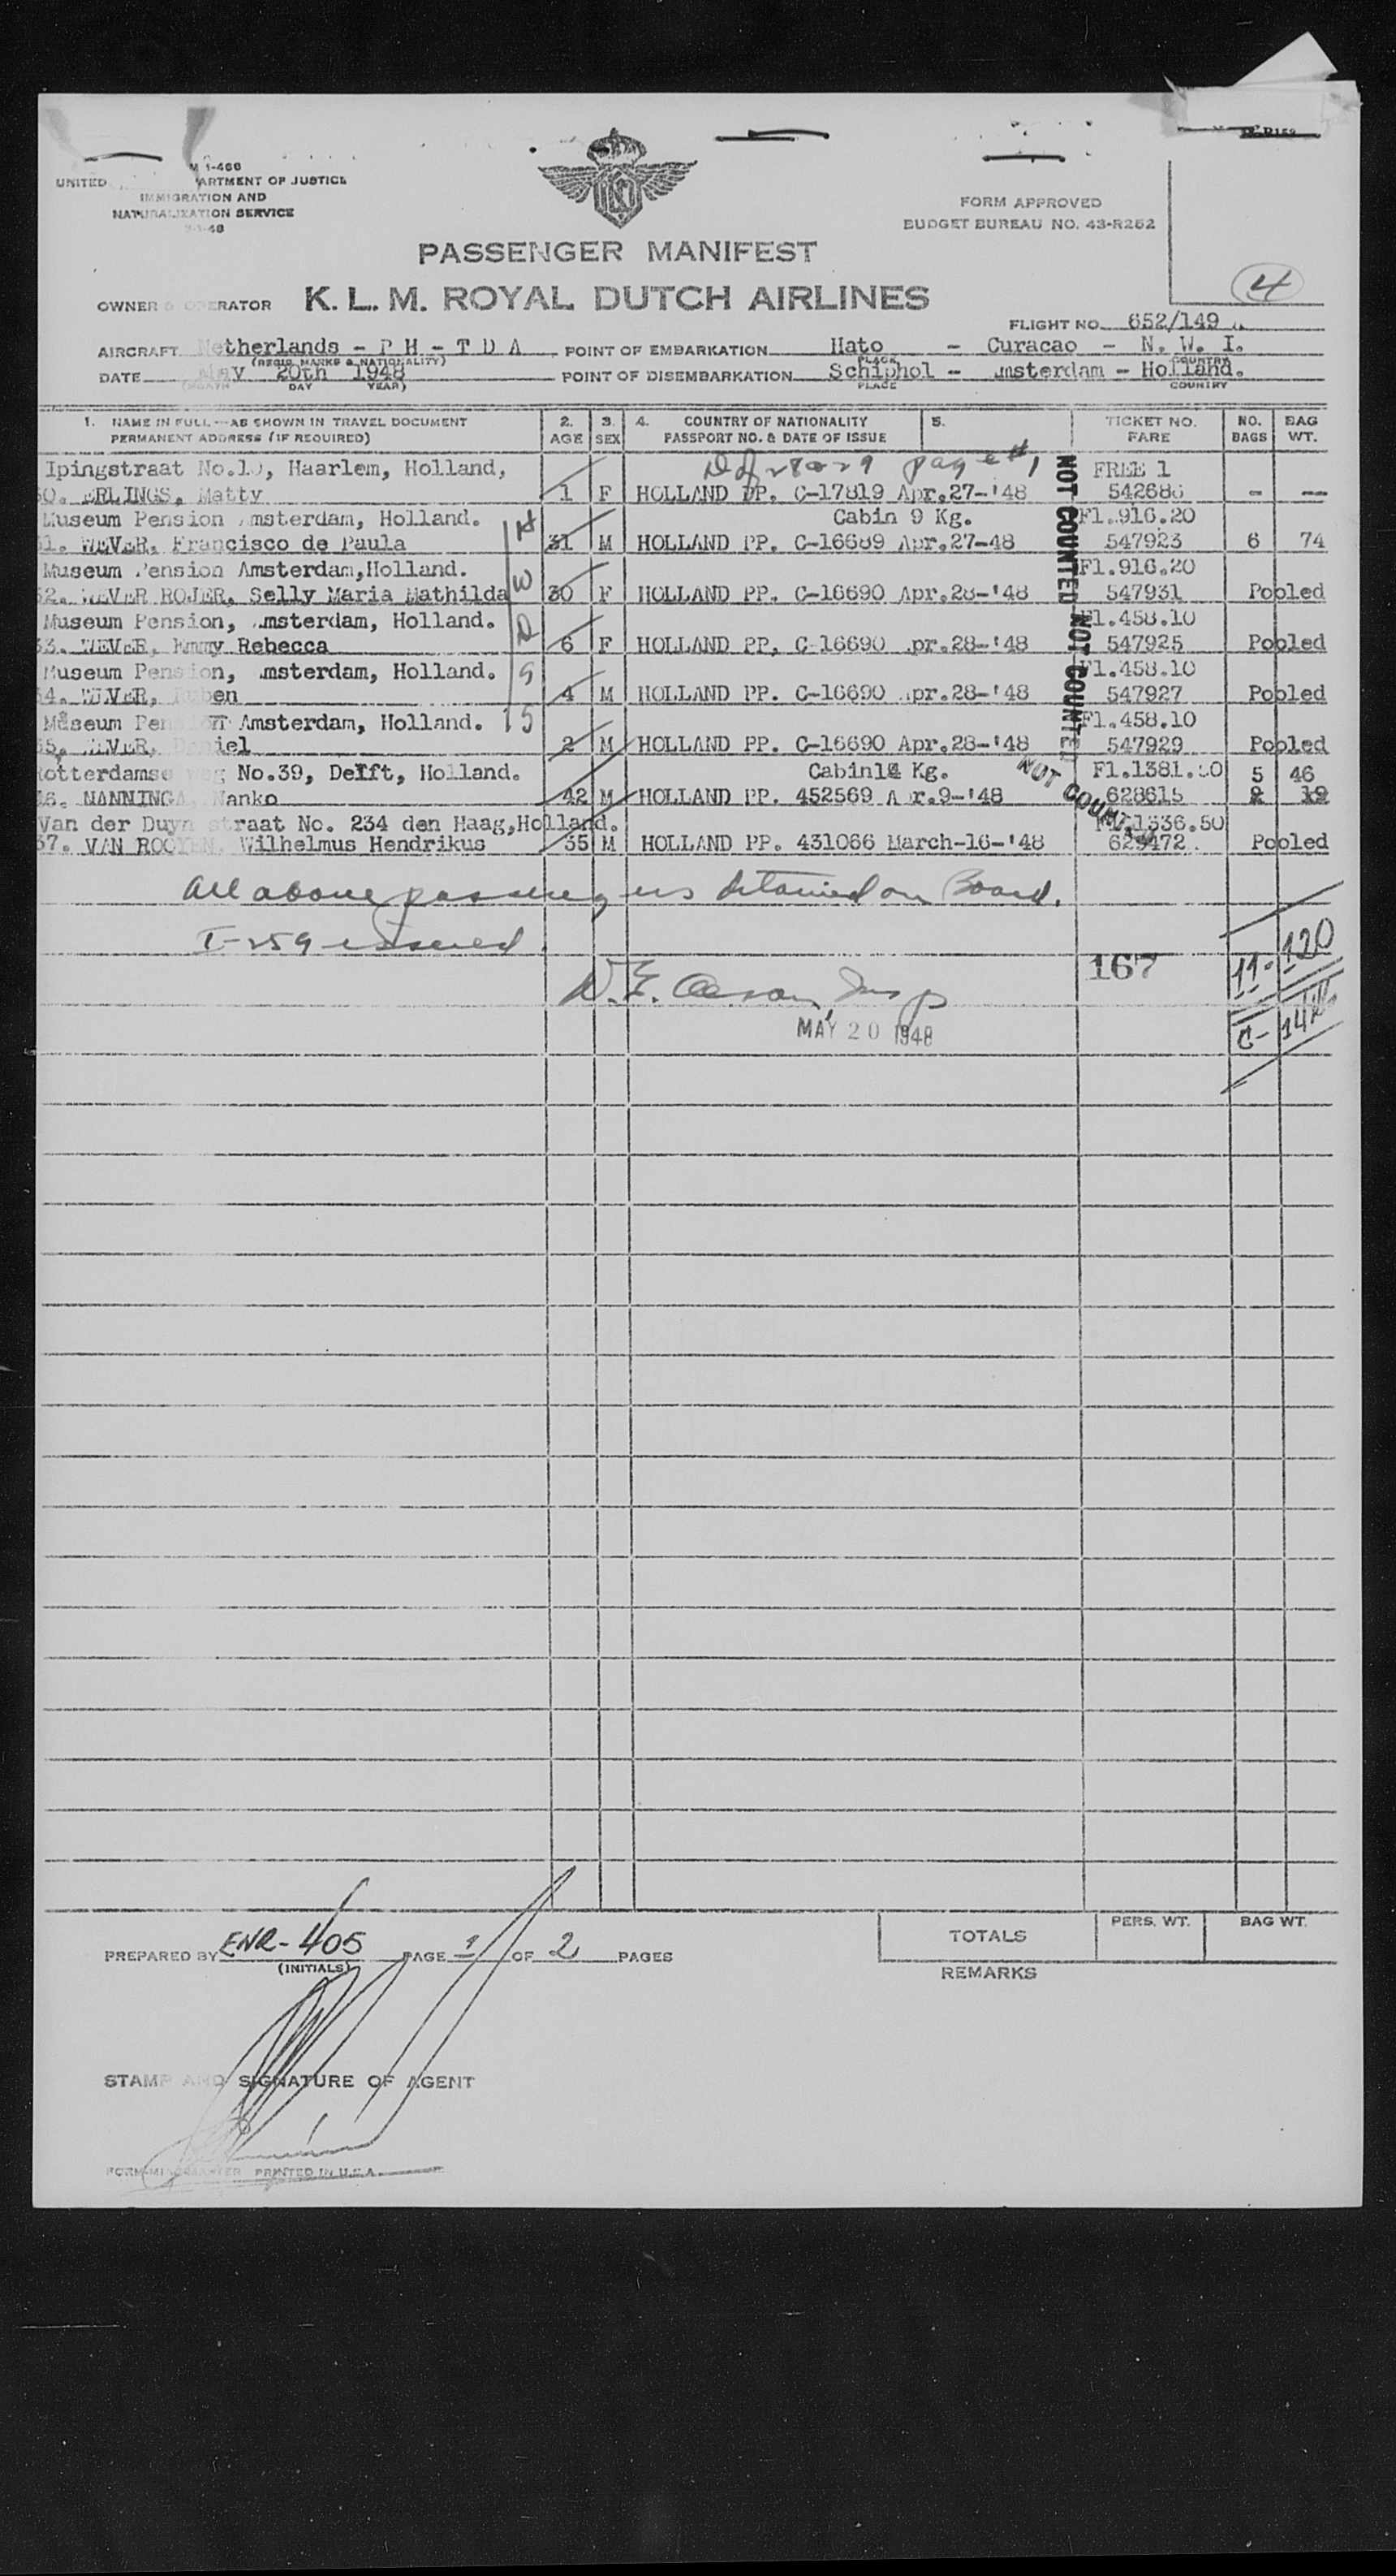 1-466
UNITED ARTMENT OF JUSTICE
IMMIGRATION AND
NATURALIZATION SERVICE
FORM APPROVED
BUDGET BUREAU NO. 43-R252
PASSENGER MANIFEST
4
OWNER & OPERATOR K. L. M. ROYAL DUTCH AIRLINES
FLIGHT NO. 652/149
AIRCRAFT Netherlands - P H - T D A POINT OF EMBARKATION Hato - Curacao - N. W. I.
(REGIS. MARKS & NATIONALITY) PLACE COUNTRY
DATE May 20th 1948 POINT OF DISEMBARKATION Schiphol - msterdam - Holland.
(MONTH DAY YEAR) PLACE COUNTRY
1. NAME IN FULL—AS SHOWN IN TRAVEL DOCUMENT 2. 3. 4. COUNTRY OF NATIONALITY 5. TICKET NO. NO. BAG
PERMANENT ADDRESS (IF REQUIRED) AGE SEX PASSPORT NO. & DATE OF ISSUE FARE BAGS WT.
Ipingstraat Haarlem, Holland, page #1 FREE 1
30. ERLINGS, Matty 1 F HOLLAND PP. C-17819 Apr.27-'48 542686 - --
Museum Pension msterdam, Holland. Cabin 9 Kg. Fl.916.20
31. WEVER, Francisco de Paula 31 M HOLLAND PP. C-16689 Apr.27-48 547923 6 74
Museum Pension Amsterdam,Holland. Fl.916.20
32. WEVER ROJER, Selly Maria Mathilda 30 F HOLLAND PP. C-16690 Apr.28-'48 547931 Pooled
Museum Pension, msterdam, Holland. Fl.458.10
33. WEVER, Emmy Rebecca 6 F HOLLAND PP, C-16690 pr.28-'48 547925 Pooled
Museum Pension, msterdam, Holland. Fl.458.10
34. WEVER, Ruben 4 M HOLLAND PP. C-16690 pr.28-'48 547927 Pooled
Museum Pension Amsterdam, Holland. Fl.458.10
35. WEVER, Daniel 2 M HOLLAND PP. C-16690 Apr.28-'48 547929 Pooled
Rotterdamse weg No.39, Delft, Holland. Cabin14 Kg. 5 46
36. NANNINGA, Nanko 42 M HOLLAND PP. 452569 A r.9-'48 628615 2 19
Van der Duyn straat No. 234 den Haag,Holland. 1336.50
37. VAN ROOYEN, Wilhelmus Hendrikus 35 M HOLLAND PP. 431066 March-16-'48 629472 Pooled
NOT COUNTED NOT COUNTED
NOT COUNTED
All above passengers detained on Board.
I-259 issued
167
11- 120
Insp
MAY 20 1948
C-
PREPARED BY ENR-405 PAGE 1 OF 2 PAGES
(INITIALS)
TOTALS PERS. WT. BAG WT.
REMARKS
STAMP AND SIGNATURE OF AGENT
PRINTED IN U.S.A.